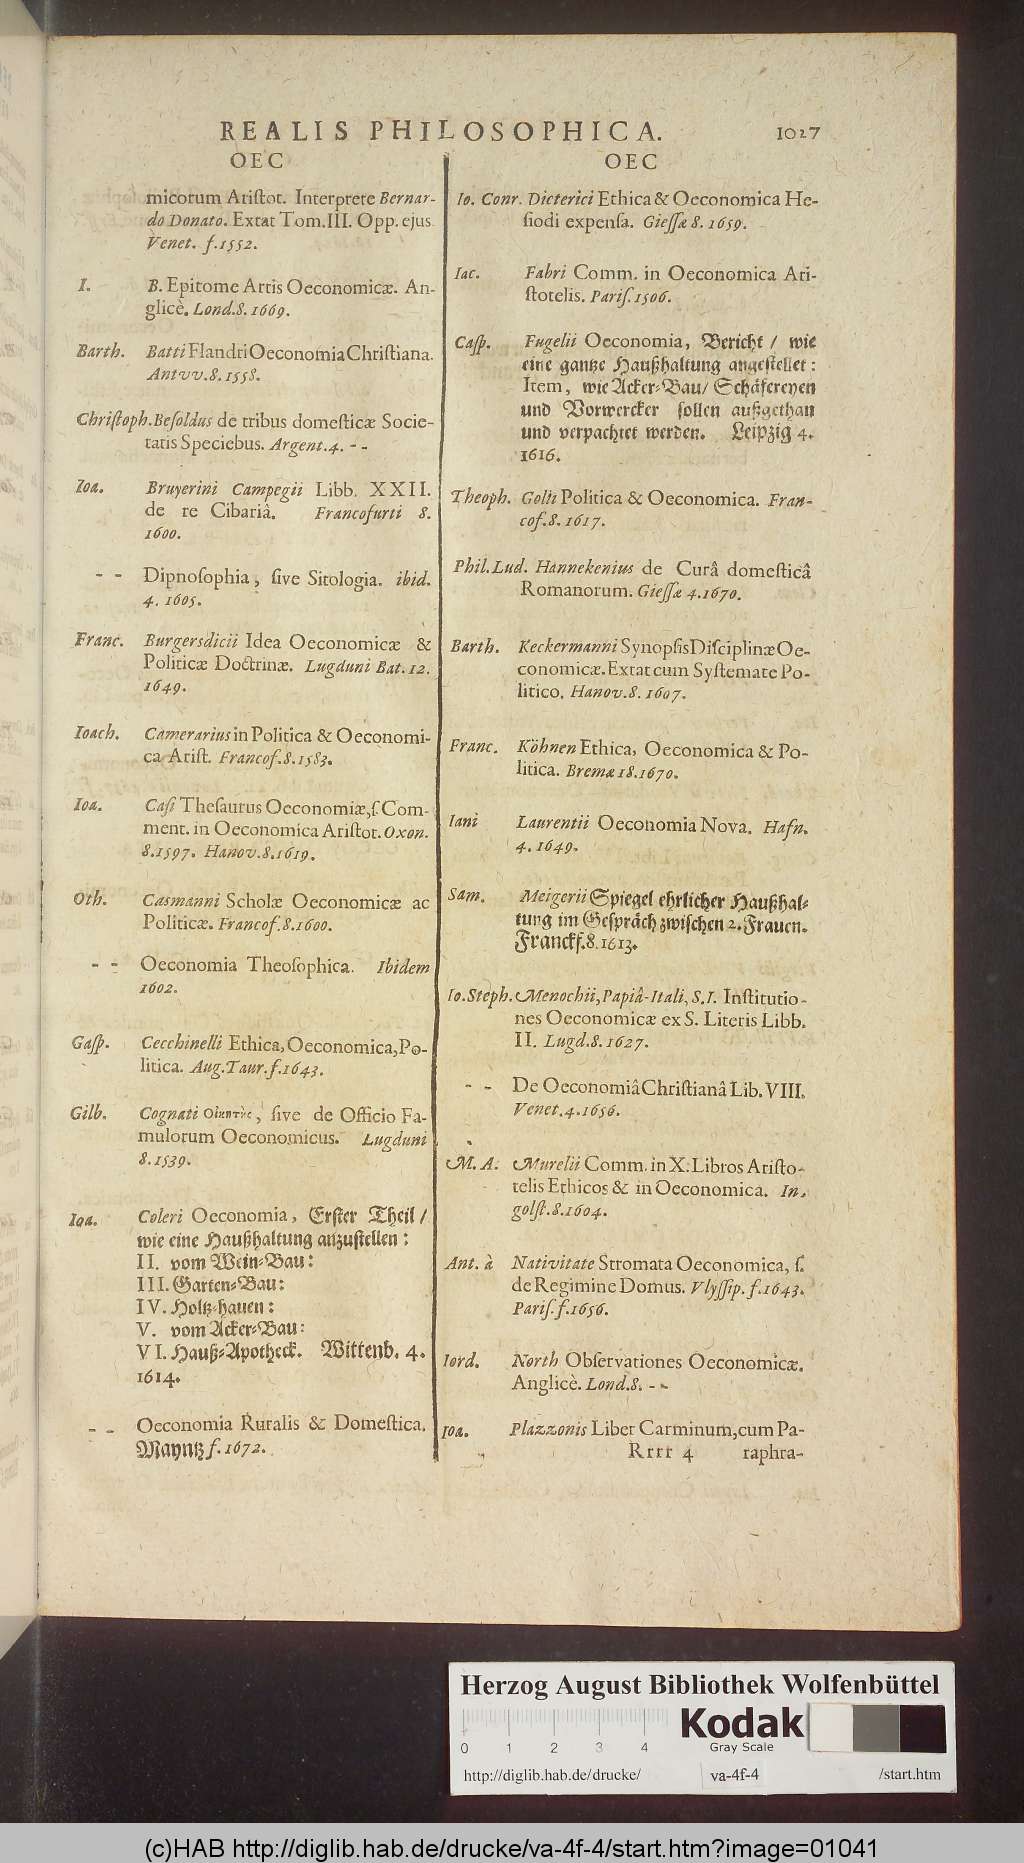 REALIS PHILOSOPHICA. 1027
OEC
micorum Ariſtot. Interprete Bernar-
do Donato. Extat Tom. III. Opp. ejus
Venet. f. 1552.
I. B. Epitome Artis Oeconomicæ. An-
glicè. Lond. 8. 1669.
Barth. Batti Flandri Oeconomia Chriſtiana.
Antvv. 8. 1558.
Chriſtoph. Beſoldus de tribus domeſticæ Socie-
tatis Speciebus. Argent. 4. - -
Ioa. Bruyerini Campegii Libb. XXII.
de re Cibariâ. Francofurti 8.
1600.
- - Dipnoſophia, ſive Sitologia. ibid.
4. 1605.
Franc. Burgersdicii Idea Oeconomicæ &
Politicæ Doctrinæ. Lugduni Bat. 12.
1649.
Ioach. Camerarius in Politica & Oeconomi-
ca Ariſt. Francof. 8. 1583.
Ioa. Caſi Theſaurus Oeconomiæ, ſ. Com-
ment. in Oeconomica Ariſtot. Oxon.
8. 1597. Hanov. 8. 1619.
Oth. Casmanni Scholæ Oeconomicæ ac
Politicæ. Francof. 8. 1600.
- - Oeconomia Theoſophica. Ibidem
1602.
Gaſp. Cecchinelli Ethica, Oeconomica, Po-
litica. Aug. Taur. f. 1643.
Gilb. Cognati Οἰκητὴς, ſive de Officio Fa-
mulorum Oeconomicus. Lugduni
8. 1539.
Ioa. Coleri Oeconomia, Erſter Theil /
wie eine Haußhaltung anzuſtellen:
II. vom Wein-Bau:
III. Garten-Bau:
IV. Holtz-hauen:
V. vom Acker-Bau:
VI. Hauß-Apotheck. Wittenb. 4.
1614.
- - Oeconomia Ruralis & Domeſtica.
Mayntz f. 1672.
OEC
Io. Conr. Dieterici Ethica & Oeconomica He-
ſiodi expenſa. Gieſſæ 8. 1659.
Iac. Fabri Comm. in Oeconomica Ari-
ſtotelis. Pariſ. 1506.
Caſp. Fugelii Oeconomia, Bericht / wie
eine gantze Haußhaltung angeſtellet:
Item, wie Acker-Bau / Schäfereyen
und Vorwercker ſollen außgethan
und verpachtet werden. Leipzig 4.
1616.
Theoph. Golii Politica & Oeconomica. Fran-
cof. 8. 1617.
Phil. Lud. Hannekenius de Curâ domeſticâ
Romanorum. Gieſſæ 4. 1670.
Barth. Keckermanni Synopſis Diſciplinæ Oe-
conomicæ. Extat cum Syſtemate Po-
litico. Hanov. 8. 1607.
Franc. Köhnen Ethica, Oeconomica & Po-
litica. Bremæ 18. 1670.
Iani Laurentii Oeconomia Nova. Hafn.
4. 1649.
Sam. Meigerii Spiegel ehrlicher Haußhal-
tung im Geſpräch zwiſchen 2. Frauen.
Franckf. 8. 1613.
Io. Steph. Menochii, Papiâ-Itali, S. I. Inſtitutio-
nes Oeconomicæ ex S. Literis Libb.
II. Lugd. 8. 1627.
- - De Oeconomiâ Chriſtianâ Lib. VIII.
Venet. 4. 1656.
M. A. Murelii Comm. in X. Libros Ariſto-
telis Ethicos & in Oeconomica. In-
golſt. 8. 1604.
Ant. à Nativitate Stromata Oeconomica, ſ.
de Regimine Domus. Vlyſſip. f. 1643.
Pariſ. f. 1656.
Iord. North Obſervationes Oeconomicæ.
Anglicè. Lond. 8. - -
Ioa. Plazzonis Liber Carminum, cum Pa-
Rrrr 4 raphra-
Herzog August Bibliothek Wolfenbüttel
0 1 2 3 4
Kodak
Gray Scale
http://diglib.hab.de/drucke/ va-4f-4 /start.htm
(c)HAB http://diglib.hab.de/drucke/va-4f-4/start.htm?image=01041